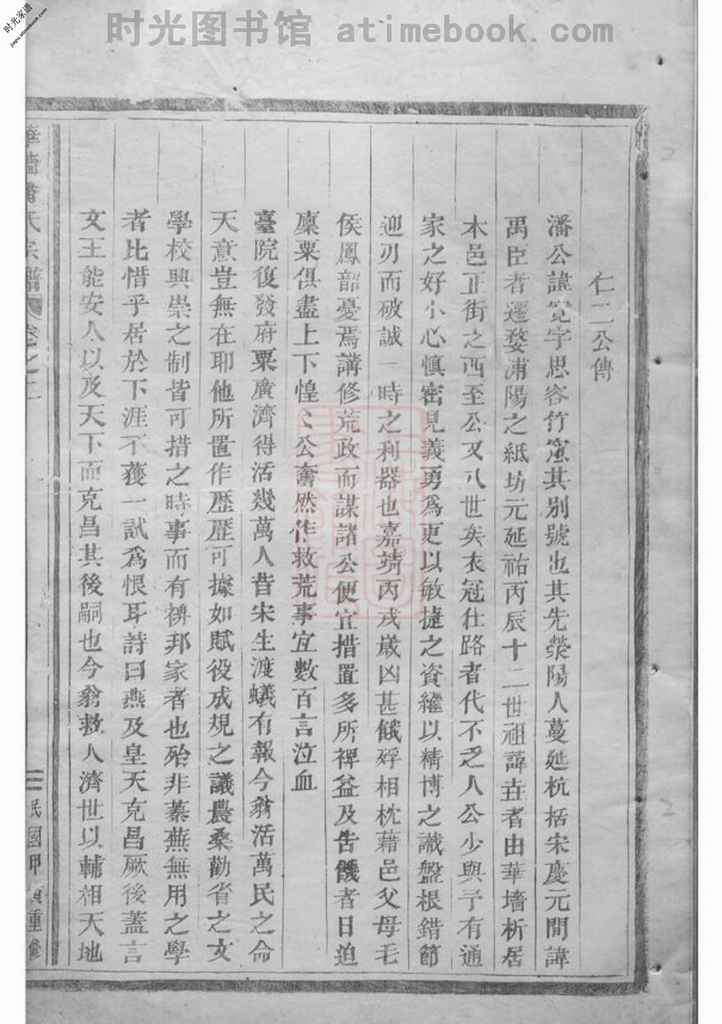 时光图书馆 atimebook.com
时光家谱
仁二公傳
潘公諱寬字思容竹窻其別號也其先滎陽人蔓延杭括宋慶元間諱
禹臣者遷婺浦陽之紙坊元延祐丙辰十二世祖諱壵者由華墻析居
木邑正街之西至公又八世矣衣冠仕路者代不乏人公少與予有通
家之好小心慎密見義勇爲更以敏捷之資繼以精博之識盤根錯節
迎刃而破誠一時之利器也嘉靖丙戌歲凶甚餓殍相枕藉邑父母毛
侯鳳韶憂焉講修荒政而謀諸公便宜措置多所裨益及告饑者日迫
廪粟俱盡上下惶〻公奮然作救荒事宜數百言泣血
臺院復發府粟廣濟得活幾萬人昔宋生渡蟻有報今翁活萬民之命
天意豈無在耶他所置作歷歷可據如賦役成規之議農桑勸省之文
學校興崇之制皆可措之時事而有裨邦家者也殆非蓁蕪無用之學
者比惜乎居於下涯不獲一試爲恨耳詩曰燕及皇天克昌厥後蓋言
文王能安人以及天下而克昌其後嗣也今翁救人濟世以輔相天地
華墻潘氏宗譜 卷之二 民國甲 重修